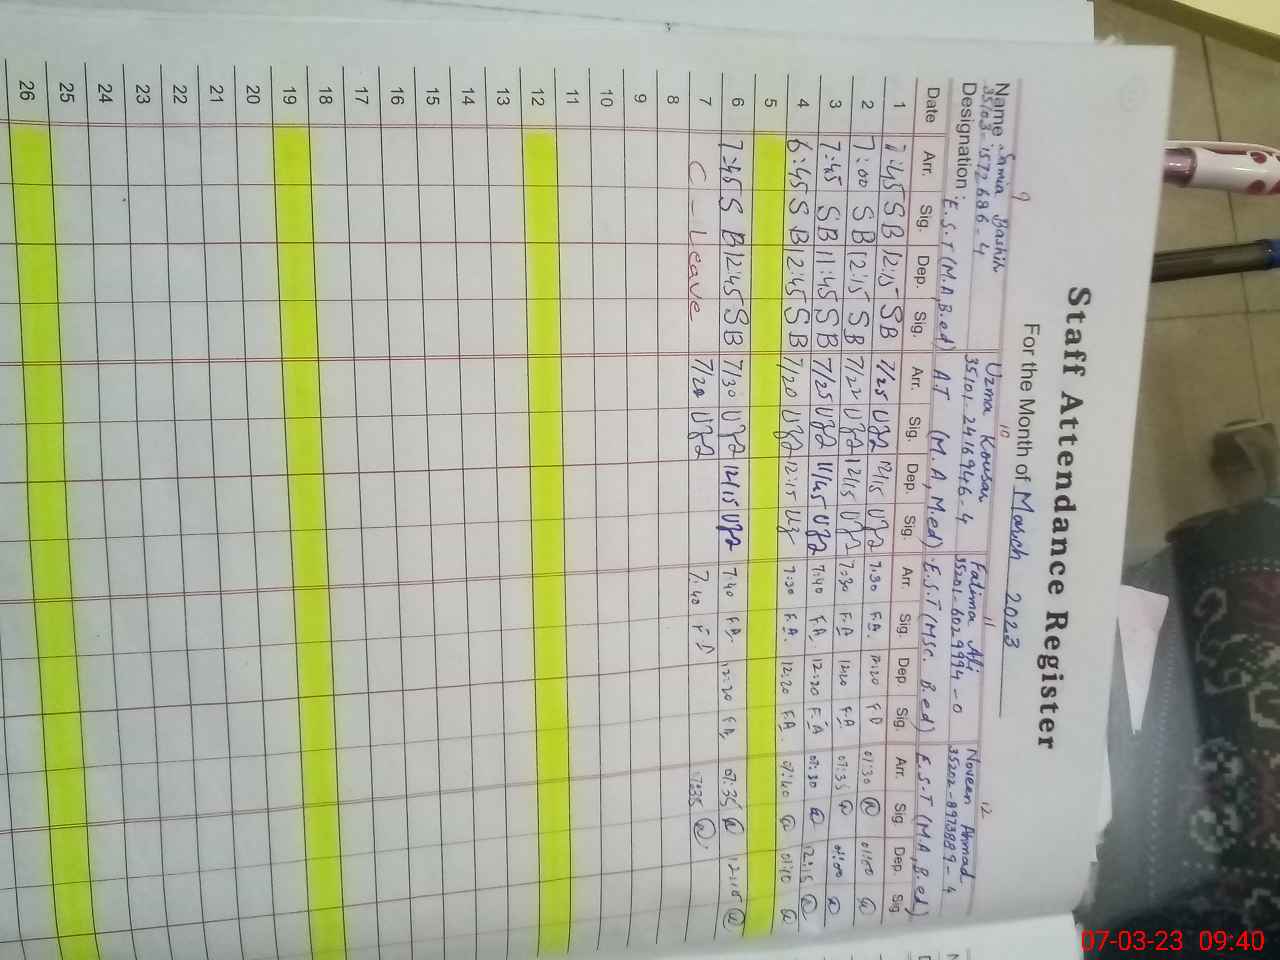 Staff Attendance Register
For the Month of March 2023
9 10 11 12
Name Samia Bashir Uzma Kousar Fatima Ali Noveen Ahmad
35103-1572686-4 35101-2416946-4 35201-6029994-0 35202-8973889-4
Designation: E.S.T (M.A, B.ed) A.T (M.A, M.ed) E.S.T (MSc. B.ed) E.S.T (M.A, B.ed)
Date Arr. Sig. Dep. Sig. Arr. Sig. Dep. Sig. Arr. Sig. Dep Sig. Arr. Sig Dep. Sig
1 7:45 SB 12:15 SB 7/25 12/15 7:30 F.A. 12:20 FA 07:30 01:00
2 7:00 SB 12:15 SB 7/22 12/15 7:30 F.A 12:20 F.A 07:35 01:00
3 7:45 SB 11:45 SB 7/25 11/45 7:40 F.A 12:20 F.A 07:30 12:15
4 6:45 SB 12:45 SB 7/20 12:15 7:30 F.A. 12:20 F.A. 07:40 01:10
5
6 7:45 SB 12:45 SB 7/30 12/15 7:40 F.A. 12:20 F.A. 07:35 12:10
7 C-Leave 7/20 7:40 F.A 07:35
8
9
10
11
12
13
14
15
16
17
18
19
20
21
22
23
24
25
26
07-03-23 09:40